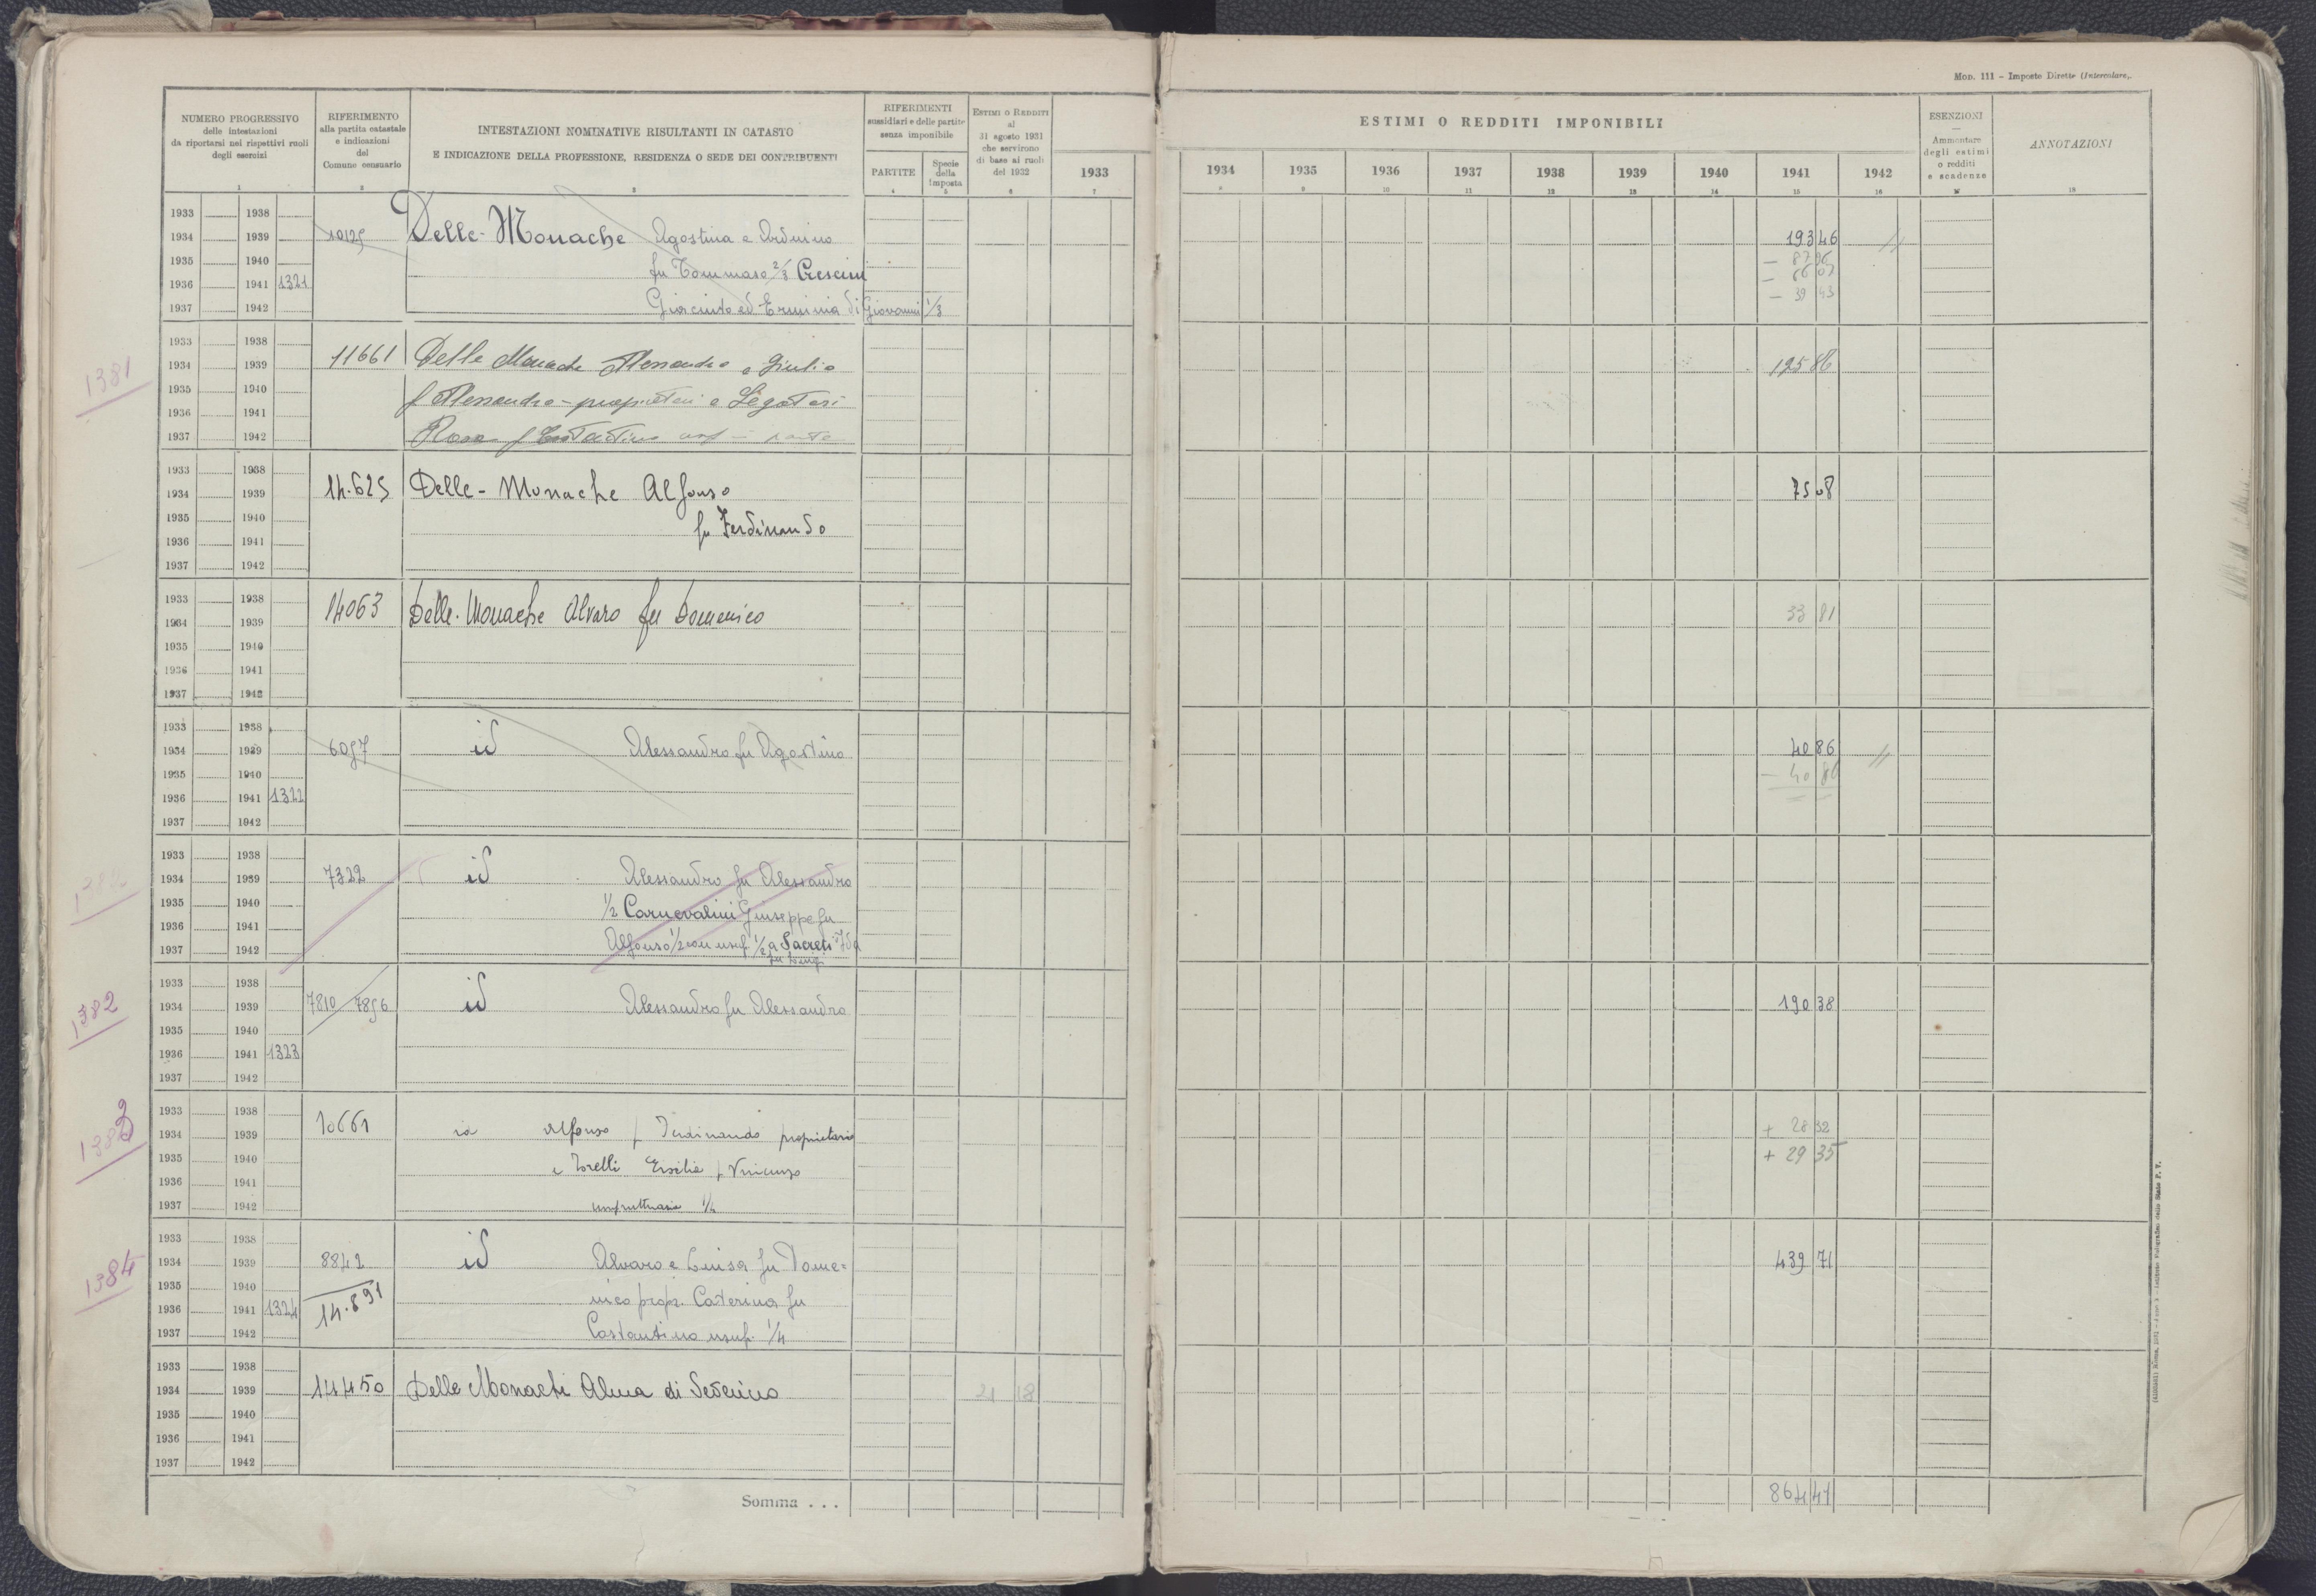 Mod. 111 - Imposte Dirette (Intercalare).
NUMERO PROGRESSIVO
delle intestazioni
da riportarsi nei rispettivi ruoli
degli esercizi
1
RIFERIMENTO
alla partita catastale
e indicazioni
del
Comune censuario
2
INTESTAZIONI NOMINATIVE RISULTANTI IN CATASTO
E INDICAZIONE DELLA PROFESSIONE, RESIDENZA O SEDE DEI CONTRIBUENTI
3
RIFERIMENTI
sussidiari e delle partite
senza imponibile
PARTITE
4
Specie
della
Imposta
5
ESTIMI O REDDITI
al
31 agosto 1931
che servirono
di base ai ruoli
del 1932
6
1933
7
ESTIMI O REDDITI IMPONIBILI
1934 1935 1936 1937 1938 1939 1940 1941 1942
8 9 10 11 12 13 14 15 16
ESENZIONI
Ammontare
degli estimi
o redditi
e scadenze
ANNOTAZIONI
18
1933 1938
1934 1939 10125 Delle-Monache Agostina e Arduino 193 46
1935 1940 fu Tommaso 2/3 Crescini
1936 1941 1321
1937 1942 Giacinto ed Erminia di Giovanni 1/3 - 39 43
1933 1938
1381 1934 1939 11661 Delle Monache Alessandro e Giulio 125 86
1935 1940
1936 1941 f Alessandro - proprietari e Legatari
1937 1942 Rosa f Costantino usf in parte
1933 1938
1934 1939 14.625 Delle-Monache Alfonso 75 08
1935 1940 fu Ferdinando
1936 1941
1937 1942
1933 1938
1934 1939 14063 Delle-Monache Alvaro fu Domenico 33 81
1935 1940
1936 1941
1937 1942
1933 1938
1934 1939 6097 id Alessandro fu Agostino 40 86
1935 1940 - 40 86
1936 1941 1322
1937 1942
1933 1938
1934 1939 7322 id Alessandro fu Alessandro
1935 1940 1/2 Carnevalini Giuseppe fu
1936 1941
1937 1942 Alfonso 1/2 con usuf. 1/2 a Sacreti Ida
fu Luigi
1933 1938
1382 1934 1939 7810 7856 id Alessandro fu Alessandro 190 38
1935 1940
1936 1941 1323
1937 1942
1933 1938
1383 1934 1939 10661 id Alfonso f Ferdinando proprietario + 28 32
1935 1940 e Torelli Ersilia f Vincenzo + 29 35
1936 1941
1937 1942 usufruttuaria 1/4
1933 1938
1384 1934 1939 8842 id Alvaro e Luisa fu Dome= 439 71
1935 1940 14.891 nico propr. Caterina fu
1936 1941 1324
1937 1942 Costantino usuf. 1/4
1933 1938
1934 1939 14450 Delle Monache Alma di Severino 21 18
1935 1940
1936 1941
1937 1942
Somma . . . 864 41